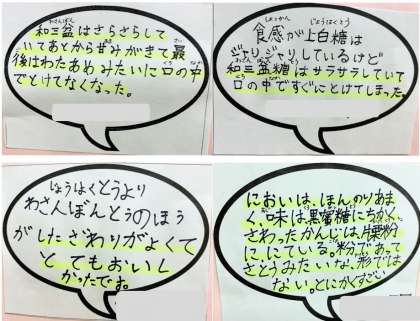 和三盆はさらさらして
いてあとからぜみがきて最
後はわたあめみたいに口の中
でとけてなくなった。
食感が上白糖は
ジャリジャリしているけど
和三盆糖はサラサラしていて
口の中ですぐにとけてしまった。
じょうはくとうより
わさんぼんとうのほう
がしたざわりがよくて
とてもおいし
かったです。
においは、ほんのりあま
く、味は黒蜜糖にちかく、
さわったかんじは、片栗粉
ににている。粉であって
さとうみたいな、形では
ない。とにかくすごい